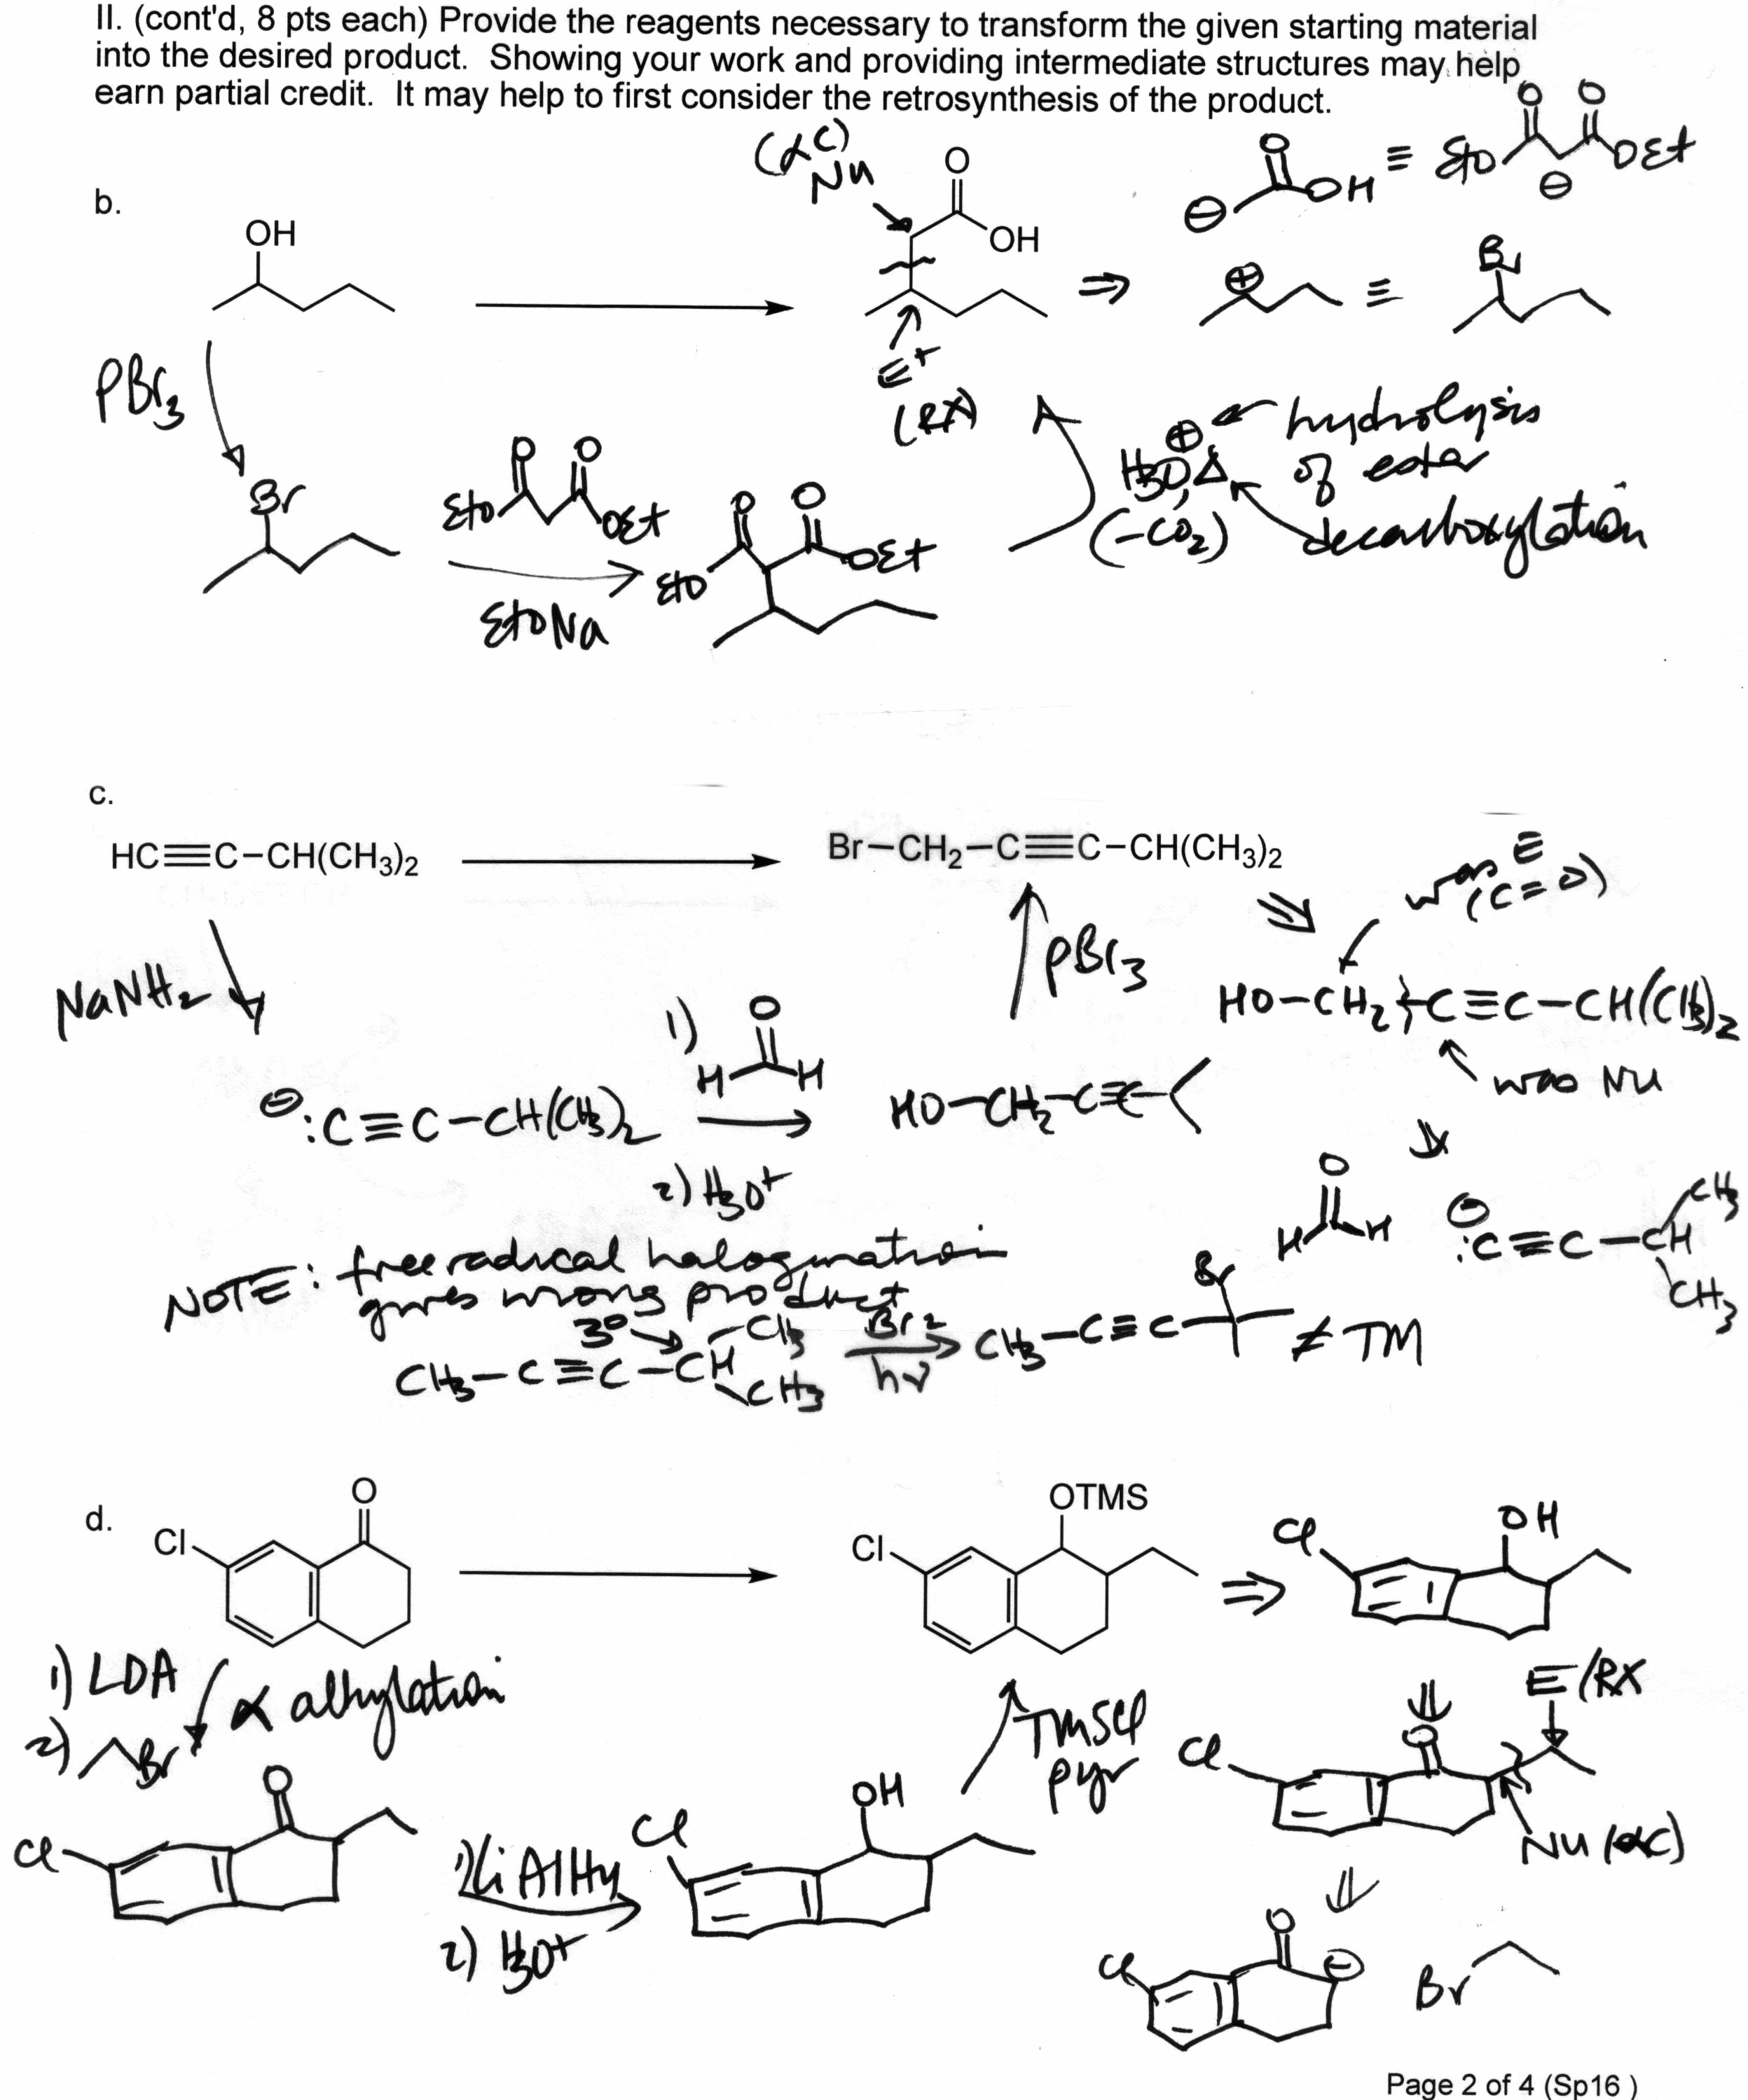 II. (cont'd, 8 pts each) Provide the reagents necessary to transform the given starting material
into the desired product. Showing your work and providing intermediate structures may help
earn partial credit. It may help to first consider the retrosynthesis of the product.
(αC)
Nu
O
OH
O
⊖ OH ≡ EtO O O OEt
⊖
b.
OH
⇒ ⊕ ≡ Br
E+
(RX)
PBr3
Br
EtO O O OEt
EtONa
EtO O O OEt
H3O⊕, Δ
(-CO2)
hydrolysis
of ester
decarboxylation
c.
HC≡C-CH(CH3)2
Br-CH2-C≡C-CH(CH3)2
was E
(C=O)
NaNH2
PBr3
⇒ HO-CH2-C≡C-CH(CH3)2
was Nu
⊖:C≡C-CH(CH3)2
1) O
H H
2) H3O+
HO-CH2-C≡C
O
H H
⊖:C≡C-CH
CH3
CH3
NOTE: free radical halogenation
gives wrong product
3°
CH3-C≡C-CH
CH3
CH3
Br2
hν
Br
CH3-C≡C ≠ TM
d.
O
Cl
OTMS
Cl
⇒
OH
Cl
1) LDA
2) Br
α alkylation
TMSCl
pyr
E/RX
O
Cl
Nu (αC)
O
Cl
1) LiAlH4
2) H3O+
OH
Cl
O
⊖
Cl
Br
Page 2 of 4 (Sp16 )